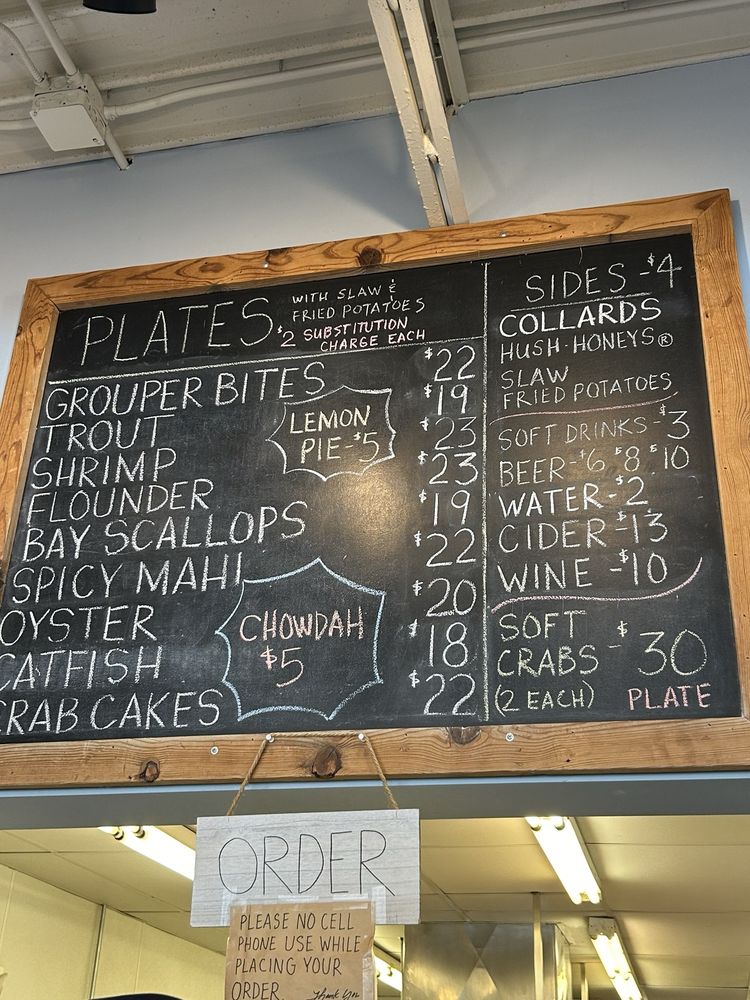 PLATES
WITH SLAW &
FRIED POTATOES
$2 SUBSTITUTION
CHARGE EACH
GROUPER BITES $22
TROUT $19
SHRIMP $23
FLOUNDER $23
BAY SCALLOPS $19
SPICY MAHI $22
OYSTER $20
CATFISH $18
CRAB CAKES $22
LEMON
PIE-$5
CHOWDAH
$5
SIDES-$4
COLLARDS
HUSH-HONEYS®
SLAW
FRIED POTATOES
SOFT DRINKS-$3
BEER-$6 $8 $10
WATER-$2
CIDER-$13
WINE-$10
SOFT
CRABS-$30
(2 EACH) PLATE
ORDER
PLEASE NO CELL
PHONE USE WHILE
PLACING YOUR
ORDER. Thank You